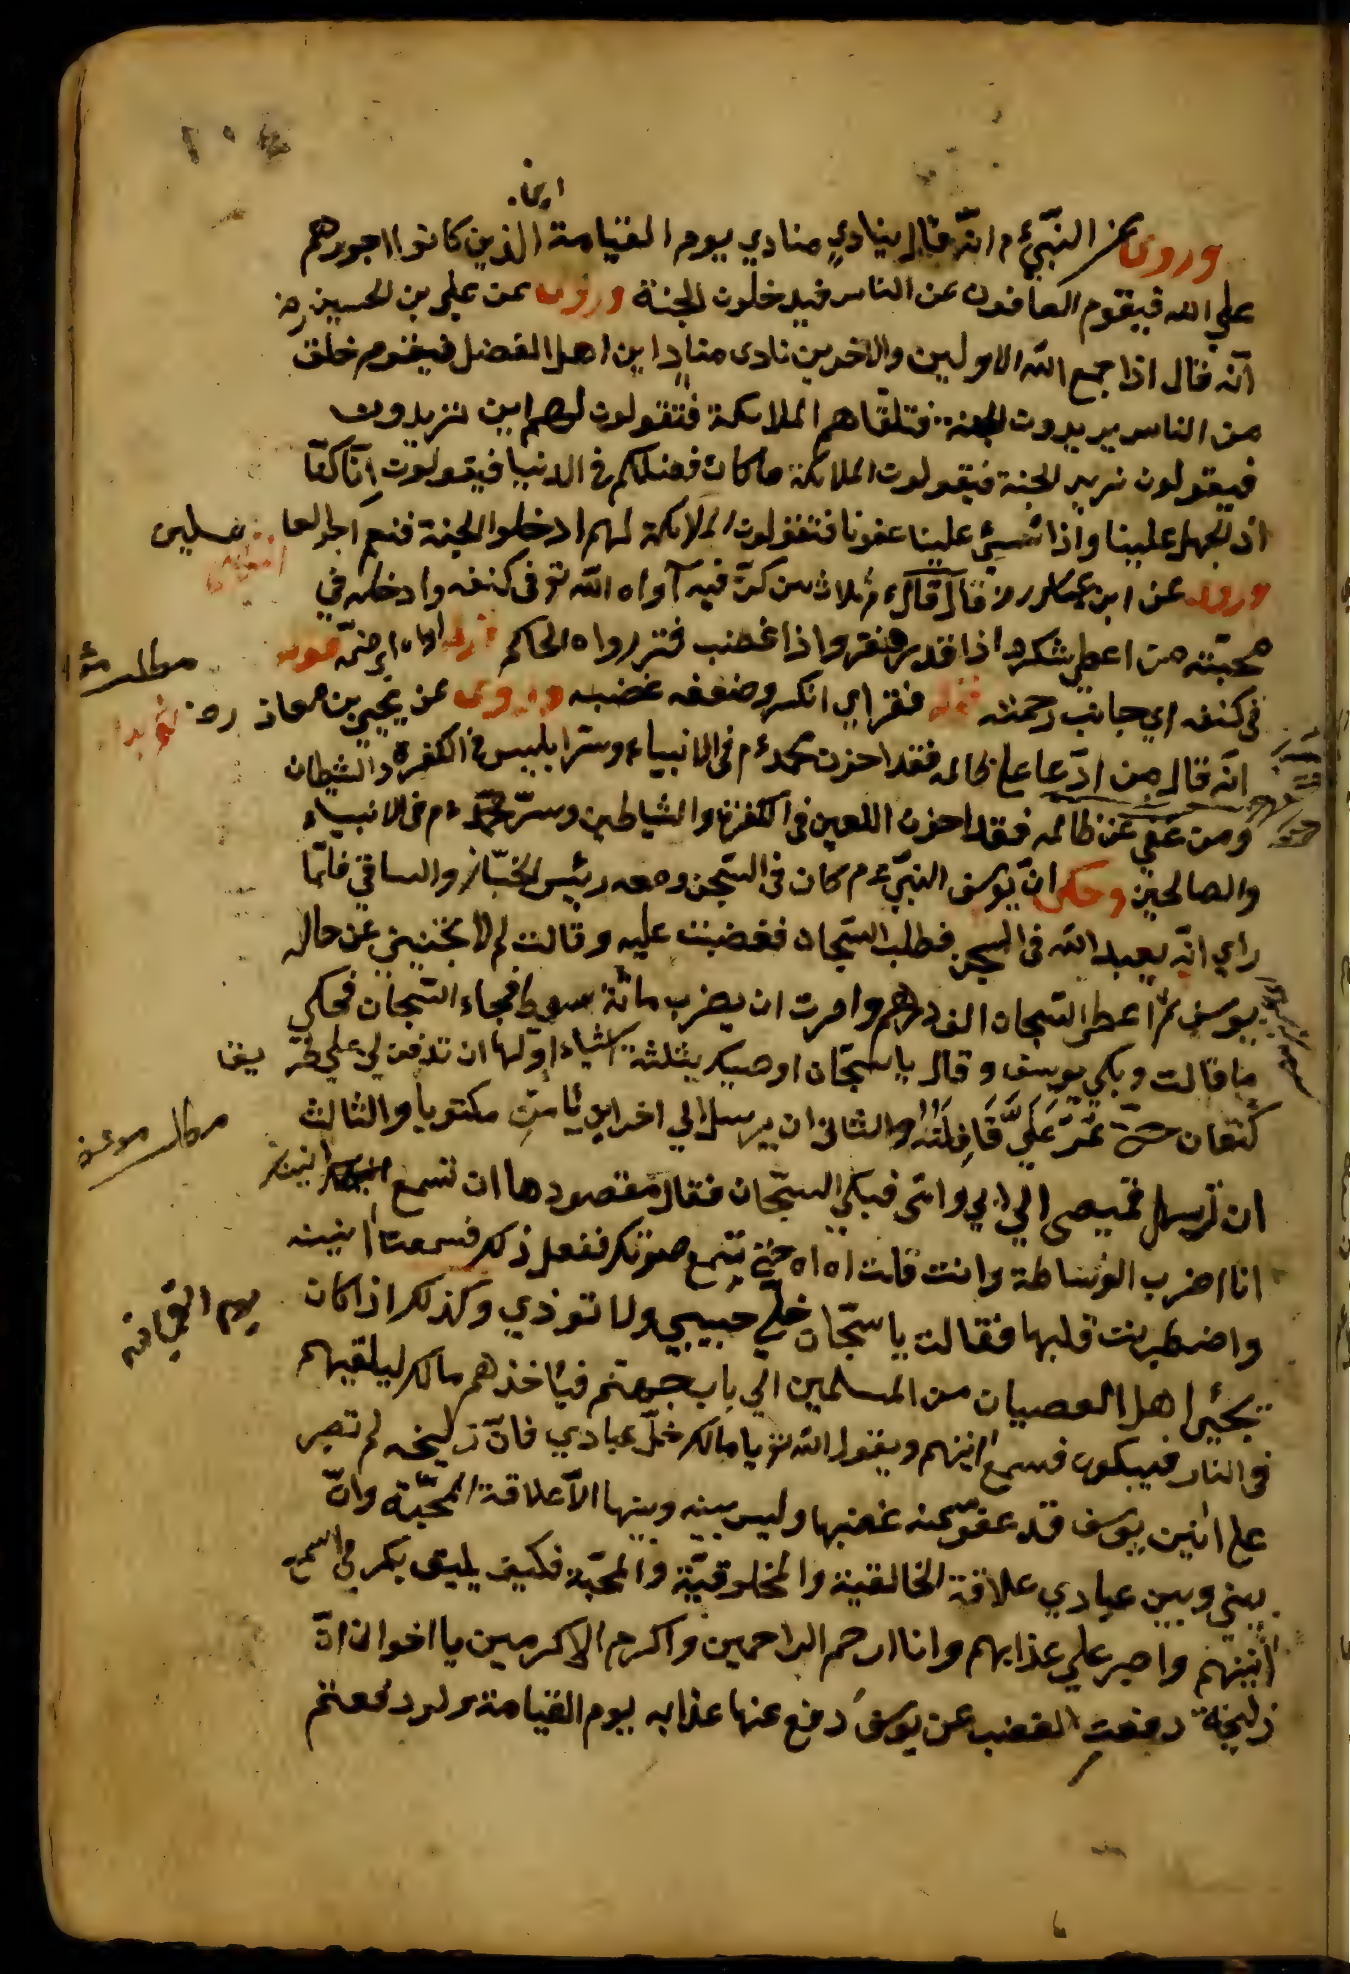 اين
وروى عن النبي ءم انه قال ينادي منادي يوم القيامة الذين كانوا اجورهم
علي الله فيقوم العافون عن الناس فيدخلون الجنة وروى عن علي بن الحسين رض
انه قال اذا جمع الله الاولين والاخرين نادى مناد اين اهل الفضل فيقوم خلق
من الناس يريدون الجنة فتلقاهم الملائكة فتقولون لهم اين تريدون
فيقولون نريد الجنة فيقولون الملائكة ما كان فضلكم في الدنيا فيقولون انا كنا
اذا يجهل علينا واذا تسيئ علينا عفونا فتقولون الملائكة لهم ادخلوا الجنة فنعم اجر العاملين
وروى عن ابن عباس رض قال قال ءم ثلاث من كن فيه آواه الله تع في كنفه وادخله في
محبته من اعطي شكر واذا قدر غفر واذا غضب فتر رواه الحاكم قوله اواه اي ضمه قوله
في كنفه اي جانب رحمته قوله فتر اي انكسر وضعف غضبه وروى عن يحيى بن معاذ رض
انه قال من ادعا علي ظالمه فقد احزن محمد ءم في الانبياء وسر ابليس في الكفرة والشيطان
ومن عفي عن ظالمه فقد احزن اللعين في الكفرة والشياطين وسر محمد ءم في الانبياء
والصالحين وحكى ان يوسف النبي ءم كان في السجن ومعه رئيس الخباز والساقي فلما
راي انه يعبد الله في السجن فطلب السجان فغضبت عليه وقالت لم لا تخبرني عن حال
يوسف ثم اعطي السجان الف درهم وامرت ان يضرب مائة سوط فجاء السجان فحكي
ما قالت وبكي يوسف وقال يا سجان اوصيك بثلثة اشياء اولها ان تدفن لي علي طريق
كنعان حتي تمر علي قافلته والثاني ان يرسل الي اخي ابن يامين مكتوبا والثالث
ان ترسل قميصي الي ابي وامي فبكي السجان فقال مقصودها ان تسمع انينك
انا اضرب الوساطة وانت قلت اه اه حتي تسمع صوتك ففعل ذلك فسمعت انينه
واضطربت قلبها فقالت يا سجان خلي حبيبي ولا توذي وكذلك اذا كان يوم القيامة
تجيئ اهل العصيان من المسلمين الي باب جهنم فيأخذهم مالك ليلقيهم
في النار فيبكون فسمع انينهم ويقول الله تع يا مالك خل عبادي فان زليخه لم تصبر
علي انين يوسف قد عفو عنه غضبها وليس بينه وبينها الا علاقة المحبة وان
بيني وبين عبادي علاقة الخالقية والمخلوقية والمحبة فكيف يليق بكرمي اسمع
انينهم واصبر علي عذابهم وانا ارحم الراحمين واكرم الاكرمين يا اخواني ان
زليخة دفعت الغضب عن يوسف دفع عنها عذابه يوم القيامة ولو دفعتم